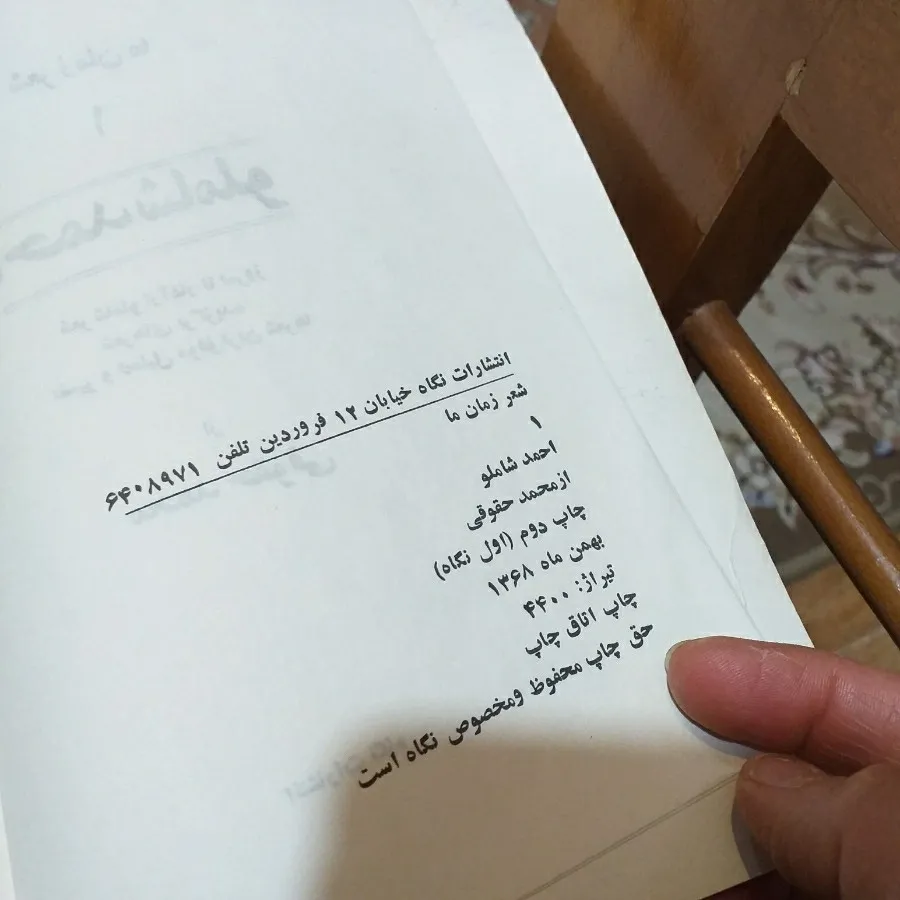 انتشارات نگاه خیابان ۱۲ فروردین تلفن ۶۴۰۸۹۷۱
شعر زمان ما
۱
احمد شاملو
ازمحمد حقوقی
چاپ دوم (اول نگاه)
بهمن ماه ۱۳۶۸
تیراژ: ۴۴۰۰
چاپ اتاق چاپ
حق چاپ محفوظ ومخصوص نگاه است